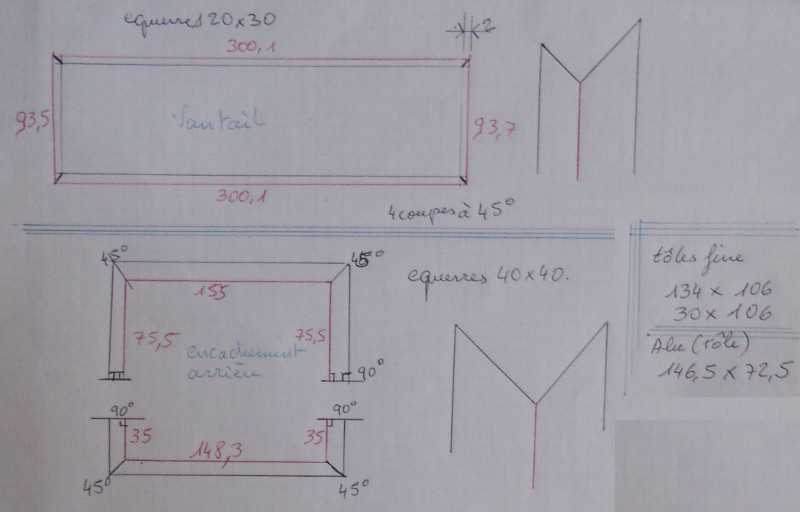 equerres 20x30
2
300,1
93,5
Vantail
93,7
300,1
4 coupes à 45°
45°
45°
155
75,5
75,5
encadrement
arrière
90°
equerres 40x40.
90°
90°
35
35
148,3
45°
45°
tôles fine
134 x 106
30 x 106
Alu (tôle)
146,5 x 72,5